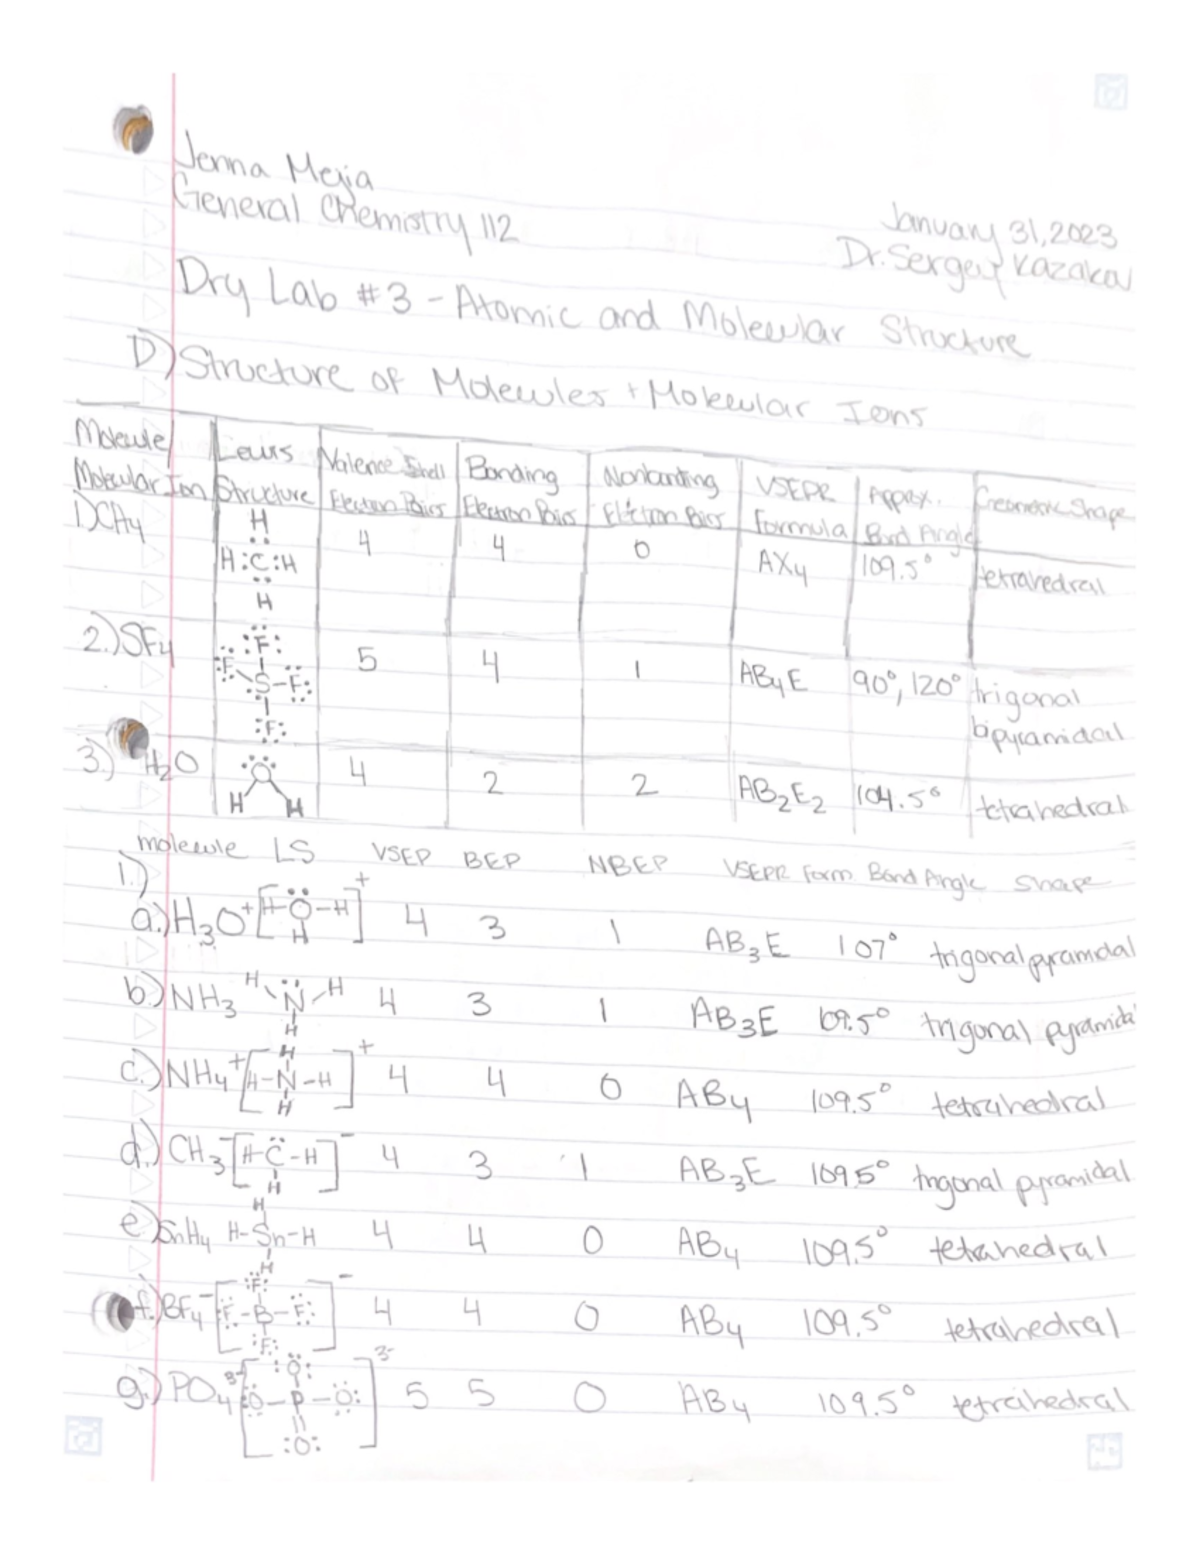 Jenna Mejia
General Chemistry 112
January 31, 2023
Dr. Sergey Kazakov
Dry Lab #3 - Atomic and Molecular Structure
D) Structure of Molecules + Molecular Ions
Molecule/ Lewis Valence Shell Bonding Nonbonding VSEPR Approx. Geometric Shape
Molecular Ion Structure Electron Pairs Electron Pairs Electron Pairs Formula Bond Angle
1) CH4 H 4 4 0 AX4 109.5° tetrahedral
H:C:H
H
2.) SF4 :F: 5 4 1 AB4E 90°, 120° trigonal
:F S-F: bipyramidal
:F:
3.) H2O O 4 2 2 AB2E2 104.5° tetrahedral
H H
molecule LS VSEP BEP NBEP VSEPR Form Bond Angle Shape
1.)
a.) H3O+ [H-O-H]+ 4 3 1 AB3E 107° trigonal pyramidal
H
b.) NH3 H N H 4 3 1 AB3E 109.5° trigonal pyramida
H
H
c.) NH4+ [H-N-H]+ 4 4 0 AB4 109.5° tetrahedral
H
d.) CH3- [H-C-H]- 4 3 1 AB3E 109.5° trigonal pyramidal
H
H
e.) SnH4 H-Sn-H 4 4 0 AB4 109.5° tetrahedral
H
:F:
f.) BF4- [:F-B-F:]- 4 4 0 AB4 109.5° tetrahedral
:F:
:O:
g.) PO4 3- [:O-P-O:]3- 5 5 0 AB4 109.5° tetrahedral
:O: